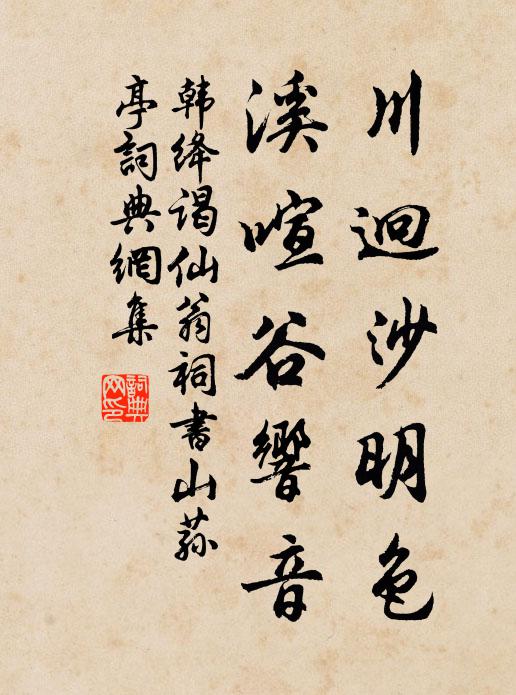 川迴沙明色
溪喧谷響音
韩绛谒仙翁祠書山荪
亭詞典網集
詞典
网印